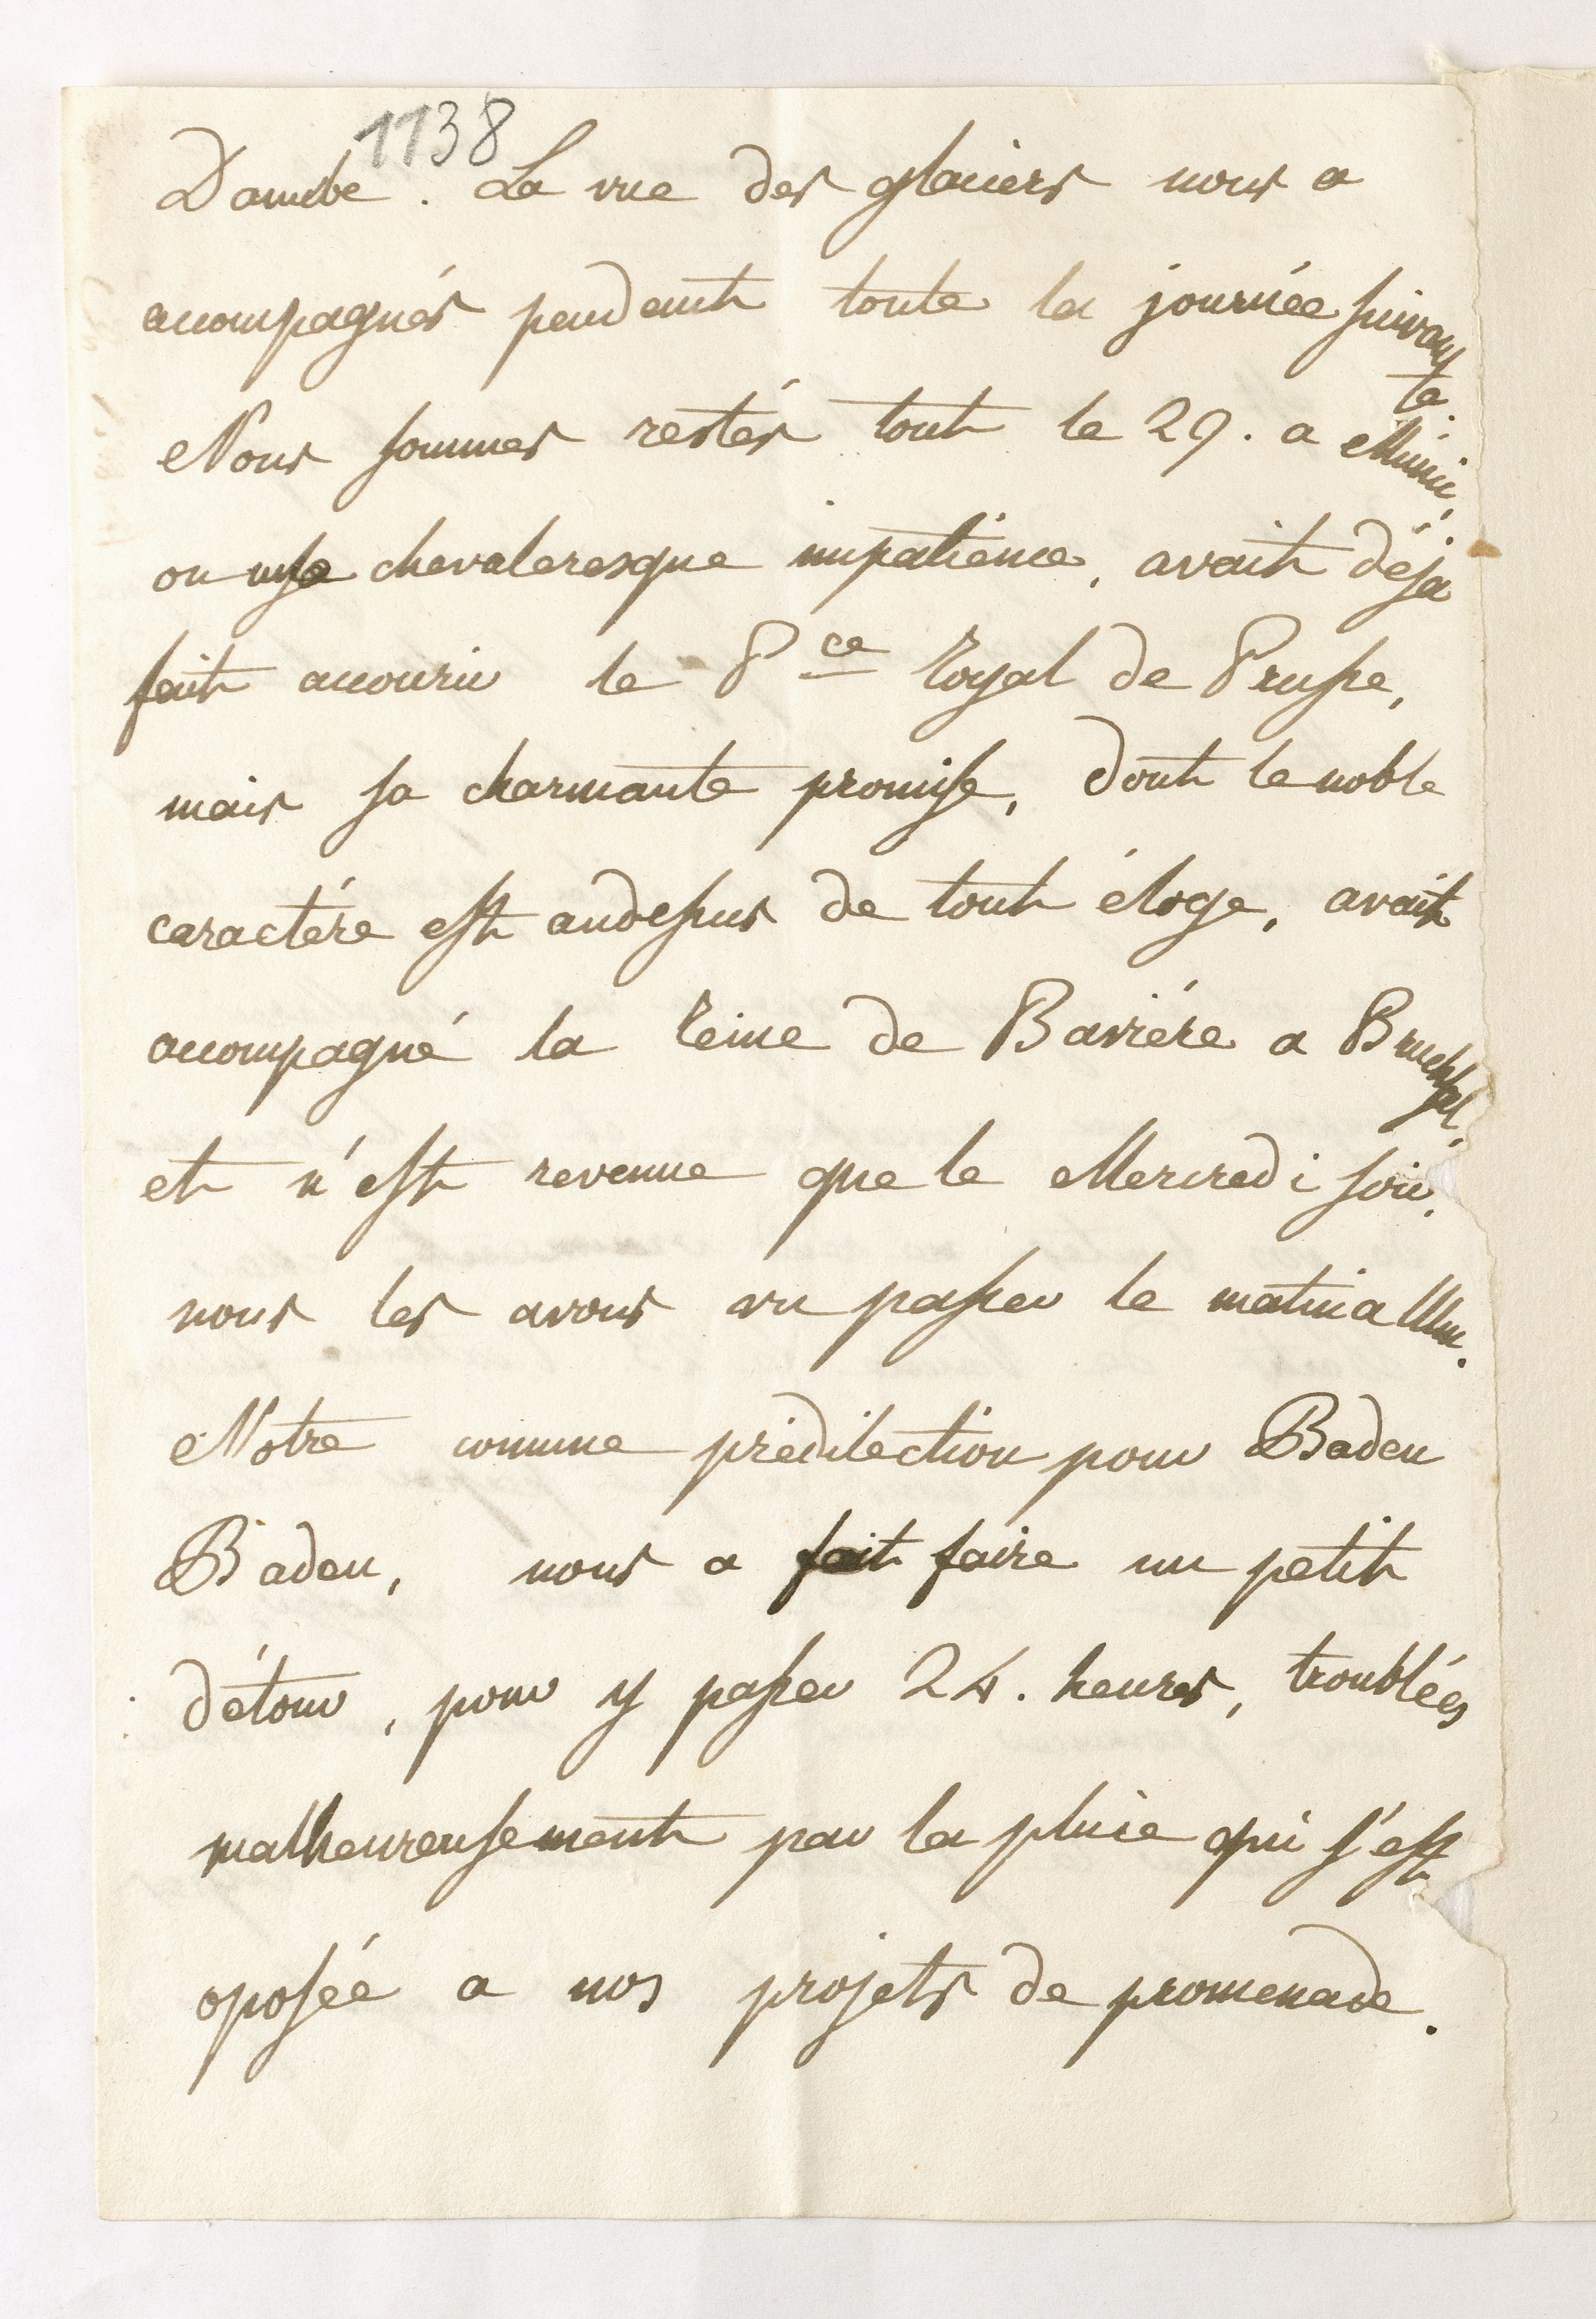 1138
Danube. La vue des glaciers nous a
accompagnés pendant toute la journée suivante.
Nous sommes restés tout le 29. a Munic,
ou une chevaleresque impatience, avait déja
fait accourir le Pce Royal de Prusse,
mais sa charmante promise, dont le noble
caractére est audessus de tout éloge, avait
accompagné la Reine de Baviére a Bruchsal,
et n'est revenue que le Mercredi soir,
nous les avons vu passer le matin a Ulm.
Notre comune prédilection pour Baden
Baden, nous a fait faire un petit
détour, pour y passer 24. heures, troublées
malheureusement par la pluie qui s'est
oposée a nos projets de promenade.